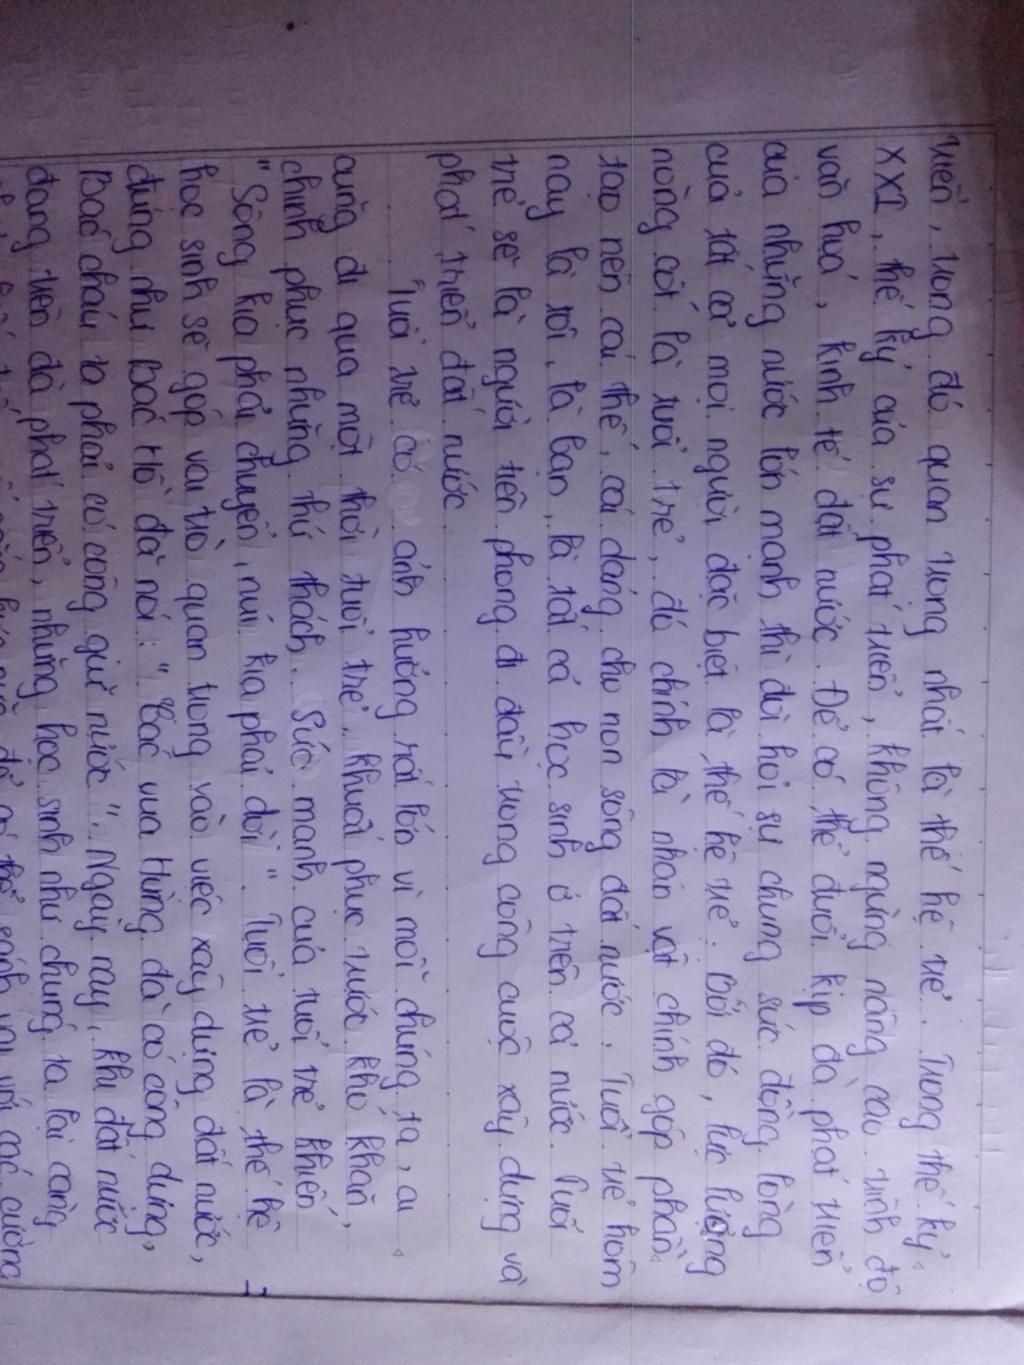 triển, trong đó quan trọng nhất là thế hệ trẻ. Trong thế kỷ
XXI, thế kỷ của sự phát triển, không ngừng nâng cao trình độ
văn hoá, kinh tế đất nước. Để có thể đuổi kịp đà phát triển
của những nước lớn mạnh thì đòi hỏi sự chung sức đồng lòng
của tất cả mọi người đặc biệt là thế hệ trẻ. Bởi đó, lực lượng
nòng cốt là tuổi trẻ, đó chính là nhân vật chính góp phần
tạo nên cái thế, cái dáng cho non sông đất nước. Tuổi trẻ hôm
nay là tôi, là bạn, là tất cả học sinh ở trên cả nước. Tuổi
trẻ sẽ là người tiên phong đi đầu trong công cuộc xây dựng và
phát triển đất nước.
Tuổi trẻ có ảnh hưởng rất lớn vì mỗi chúng ta, ai
cũng đi qua một thời tuổi trẻ, khuất phục trước khó khăn,
chinh phục những thử thách. Sức mạnh của tuổi trẻ khiến
"Sông kia phải chuyển, núi kia phải dời". Tuổi trẻ là thế hệ
học sinh sẽ góp vai trò quan trọng vào việc xây dựng đất nước,
đúng như Bác Hồ đã nói: "Các vua Hùng đã có công dựng,
Bác cháu ta phải có công giữ nước". Ngày nay, khi đất nước
đang trên đà phát triển, những học sinh như chúng ta lại càng
để có thể sánh vai với các cường